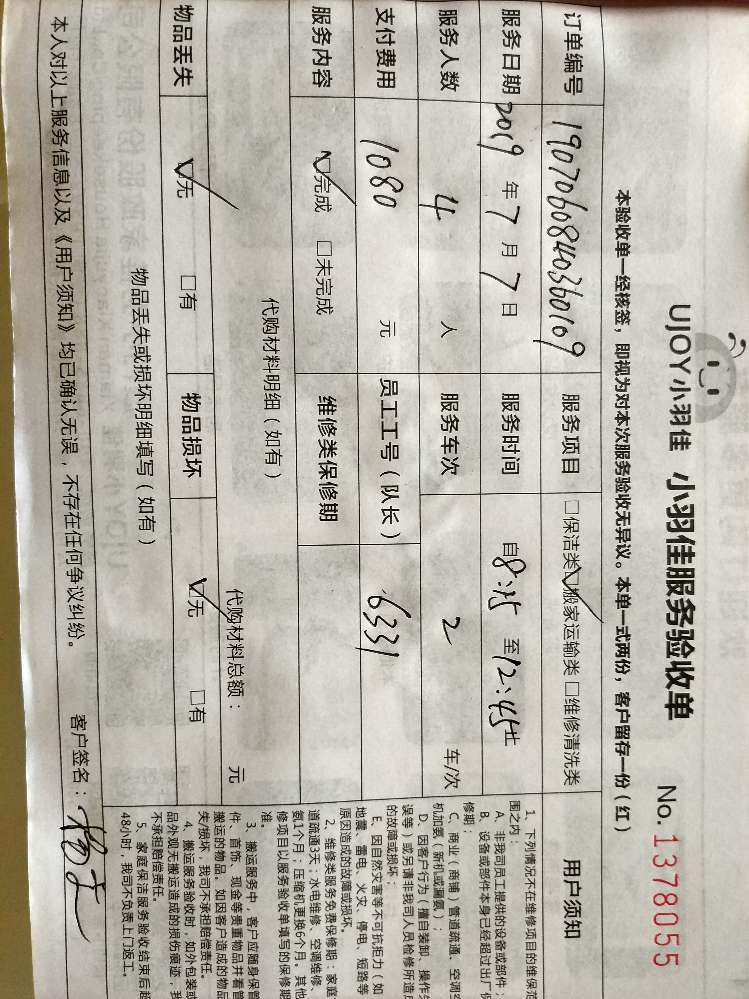 UJOY小羽佳 小羽佳服务验收单 No.1378055
本验收单一经核签，即视为对本次服务验收无异议。本单一式两份，客户留存一份（红）
订单编号 1907060840360109 服务项目 □保洁类☑搬家运输类□维修清洗类
服务日期 2019年7月7日 服务时间 自8:15至12:45止
服务人数 4 人 服务车次 2 车/次
支付费用 1080 元 员工工号（队长） 6331
服务内容 ☑完成 □未完成 维修类保修期
代购材料明细（如有）
代购材料总额： 元
物品丢失 ☑无 □有 物品损坏 ☑无 □有
物品丢失或损坏明细填写（如有）
本人对以上服务信息以及《用户须知》均已确认无误，不存在任何争议纠纷。 客户签名：
用户须知
1、下列情况不在维修项目的维保范
围之内：
A、非我司员工提供的设备或部件；
B、设备或部件本身已经超过出厂保
修期；
C、商业（商铺）管道疏通、空调空
机加氨（新机或漏氨）；
D、因客户行为（擅自装卸、操作失
误等）或另请非我司人员维修所造成
的故障或损坏；
E、因自然灾害等不可抗拒力（如
地震、雷电、火灾、停电、短路等
原因造成的故障或损坏。
2、维修类服务免费保修期：家庭
道疏通3天；水电维修、空调维修、
氨1个月；压缩机更换6个月。其他
修项目以服务验收单填写的保修期
准。
3、搬运服务中，客户应随身保管
件、首饰、现金等贵重物品并看管
搬运的物品，如因客户造成的物品
失/损坏，我司不承担赔偿责任。
4、搬运服务验收时，如外包装或
品外观无搬运造成的损伤痕迹，我
不承担赔偿责任。
5、家庭保洁服务验收结束后超
48小时，我司不负责上门返工。